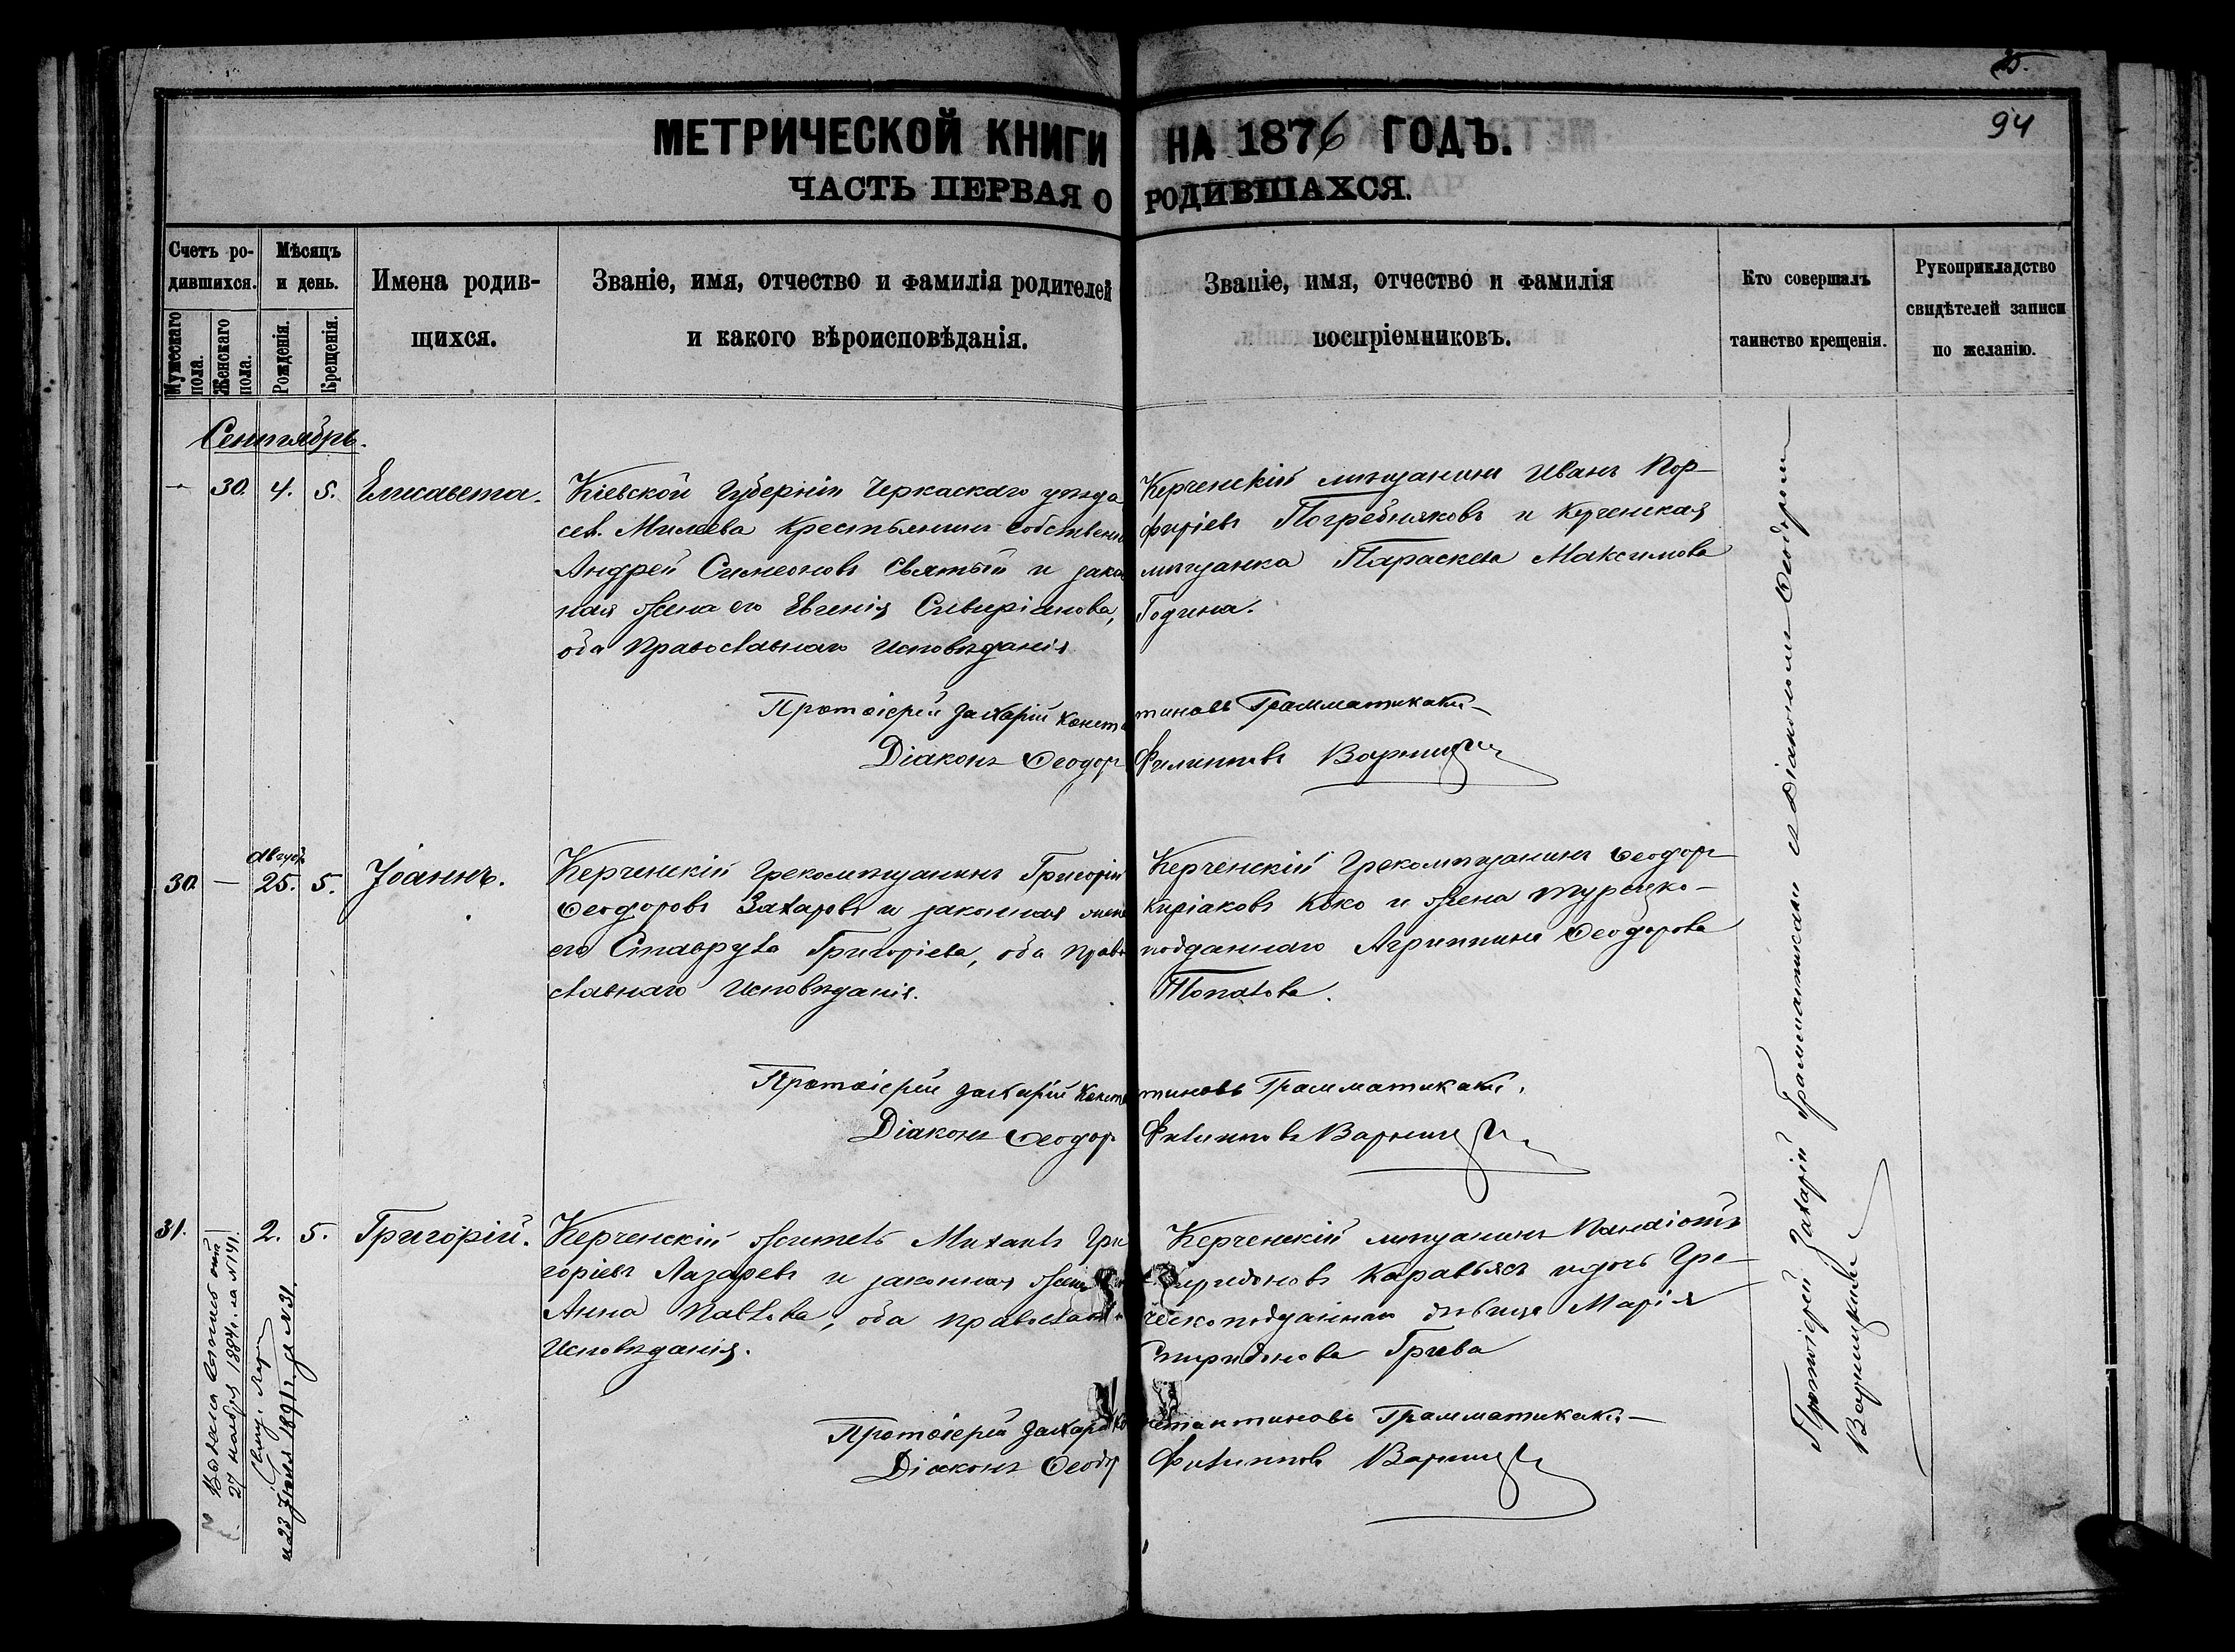 25.
94
МЕТРИЧЕСКОЙ КНИГИ НА 1876 ГОДЪ.
ЧАСТЬ ПЕРВАЯ О РОДИВШАХСЯ.
Счетъ ро-
дившихся.
Мужескаго пола.
Женскаго пола.
Мѣсяцъ
и день.
Рожденія.
Крещенія.
Имена родив-
щихся.
Званіе, имя, отчество и фамилія родителей
и какого вѣроисповѣданія.
Званіе, имя, отчество и фамилія
воспріемниковъ.
Кто совершалъ
таинство крещенія.
Рукоприкладство
свидѣтелей записи
по желанію.
Сентябрь.
— 30. 4. 5. Елисавета.
Кіевской Губерніи Черкаскаго уѣзда
сел. Милеева Крестьянинъ собствен
Андрей Симеоновъ Святый и зако
ная жена его Евгенія Сивиріанова,
оба Православнаго Исповѣданія
Керченскій мѣщанинъ Иванъ Пор-
фиріевъ Погребняковъ и Керченская
мѣщанка Параскева Максимова
Година.
Протоіерей Захарій Константиновъ Грамматикаки
Діаконъ Ѳеодоръ Филиповъ Варницкій
30. — Август. 25. 5. Іоаннъ.
Керченскій Грекомѣщанинъ Григорій
Ѳеодоровъ Захаровъ и законная жена
его Ставрула Григоріева, оба Право
славнаго Исповѣданія.
Керченскій Грекомѣщанинъ Ѳеодоръ
Киріаковъ Коко и жена турецко-
подданнаго Агриппина Ѳеодорова
Попалова.
Протоіерей Захарій Константиновъ Грамматикаки.
Діаконъ Ѳеодоръ Филиповъ Варницкій
31. — 2. 5. Григорій.
Керченскій житель Михаилъ Гри
горіевъ Лазаревъ и законная жена
Анна Павлова, оба православн
Исповѣданія.
Керченскій мѣщанинъ Панаіотъ
Спиридоновъ Каравьясъ и дочь Гре-
ческоподданнаго дѣвица Марія
Спиридонова Грива
Протоіерей Захарій Константиновъ Грамматикаки
Діаконъ Ѳеодоръ Филиповъ Варницкій
Выдана выпись
27 ноября 1884 г. за №141.
и 23 Іюля 1891 г. за №31.
Протоіерей Захарій Грамматикаки съ Діакономъ Ѳеодоромъ
Варницкимъ